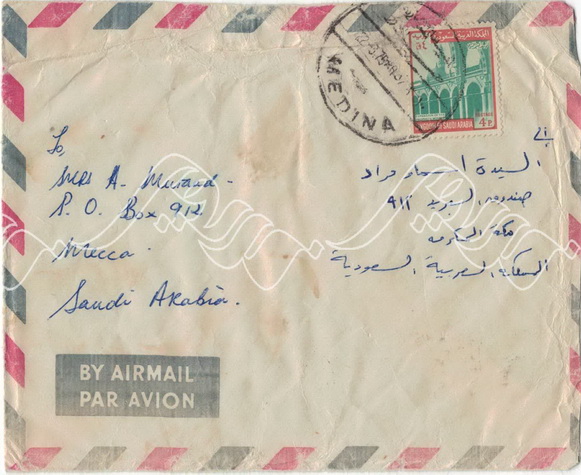 المملكة العربية السعودية
KINGDOM OF SAUDI ARABIA
POSTAGE
4P
MEDINA
To,
Mrs A. Murad
P. O. Box 912
Mecca
Saudi Arabia.
إلى
السيدة اسماء مراد
صندوق البريد ٩١٢
مكة المكرمه
المملكة العربية السعودية
BY AIRMAIL
PAR AVION